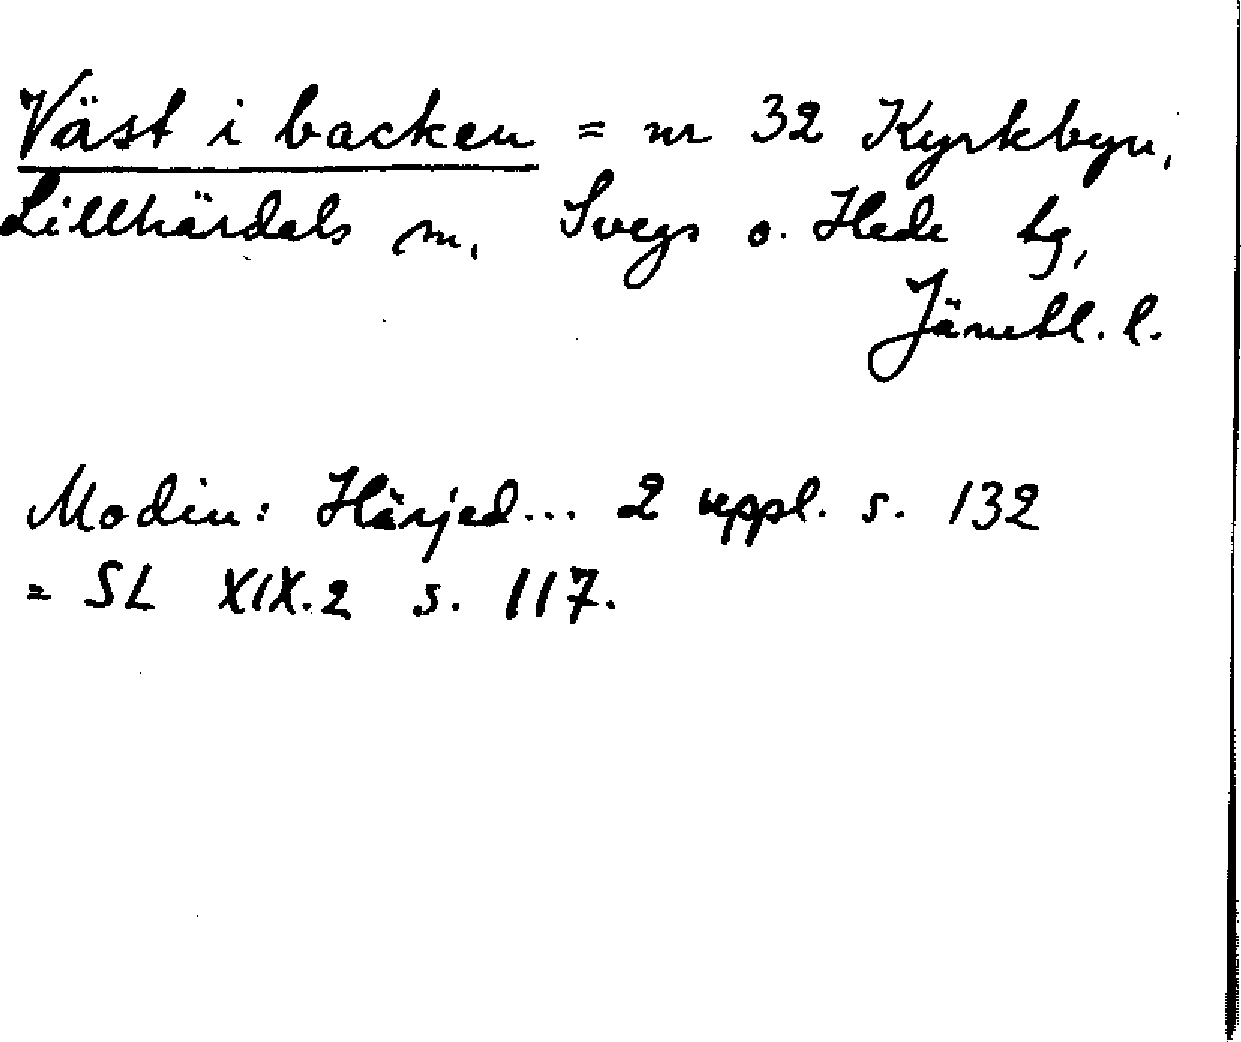 Väst i backen = nr 32 Kyrkbyn,
Lillhärdals sn, Svegs o. Hede tg,
Jämtl. l.
Modin: Härjed... 2 uppl. s. 132
= SL XIX.2 s. 117.